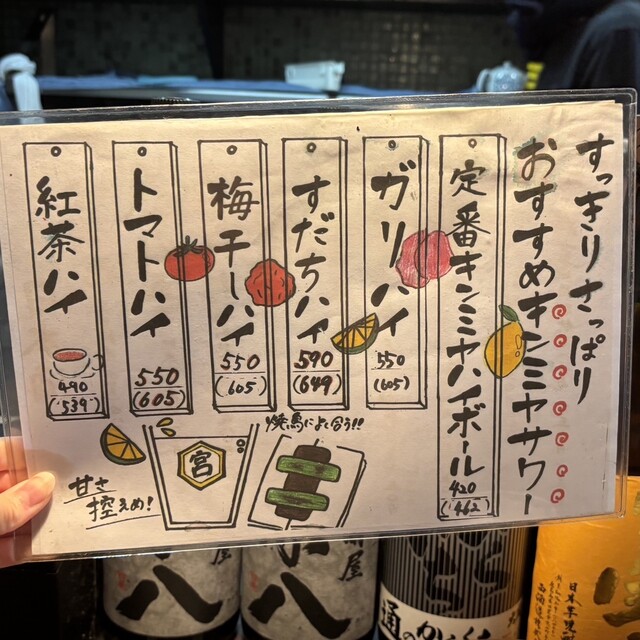 すっきりさっぱり
おすすめキンミヤサワー
定番キンミヤハイボール
420
(462)
ガリハイ
550
(605)
すだちハイ
590
(649)
梅干しハイ
550
(605)
トマトハイ
550
(605)
紅茶ハイ
490
(539)
焼鳥によく合う!!
宮
甘さ
控えめ!
屋
八
八
屋
通のかくし
日本芋焼